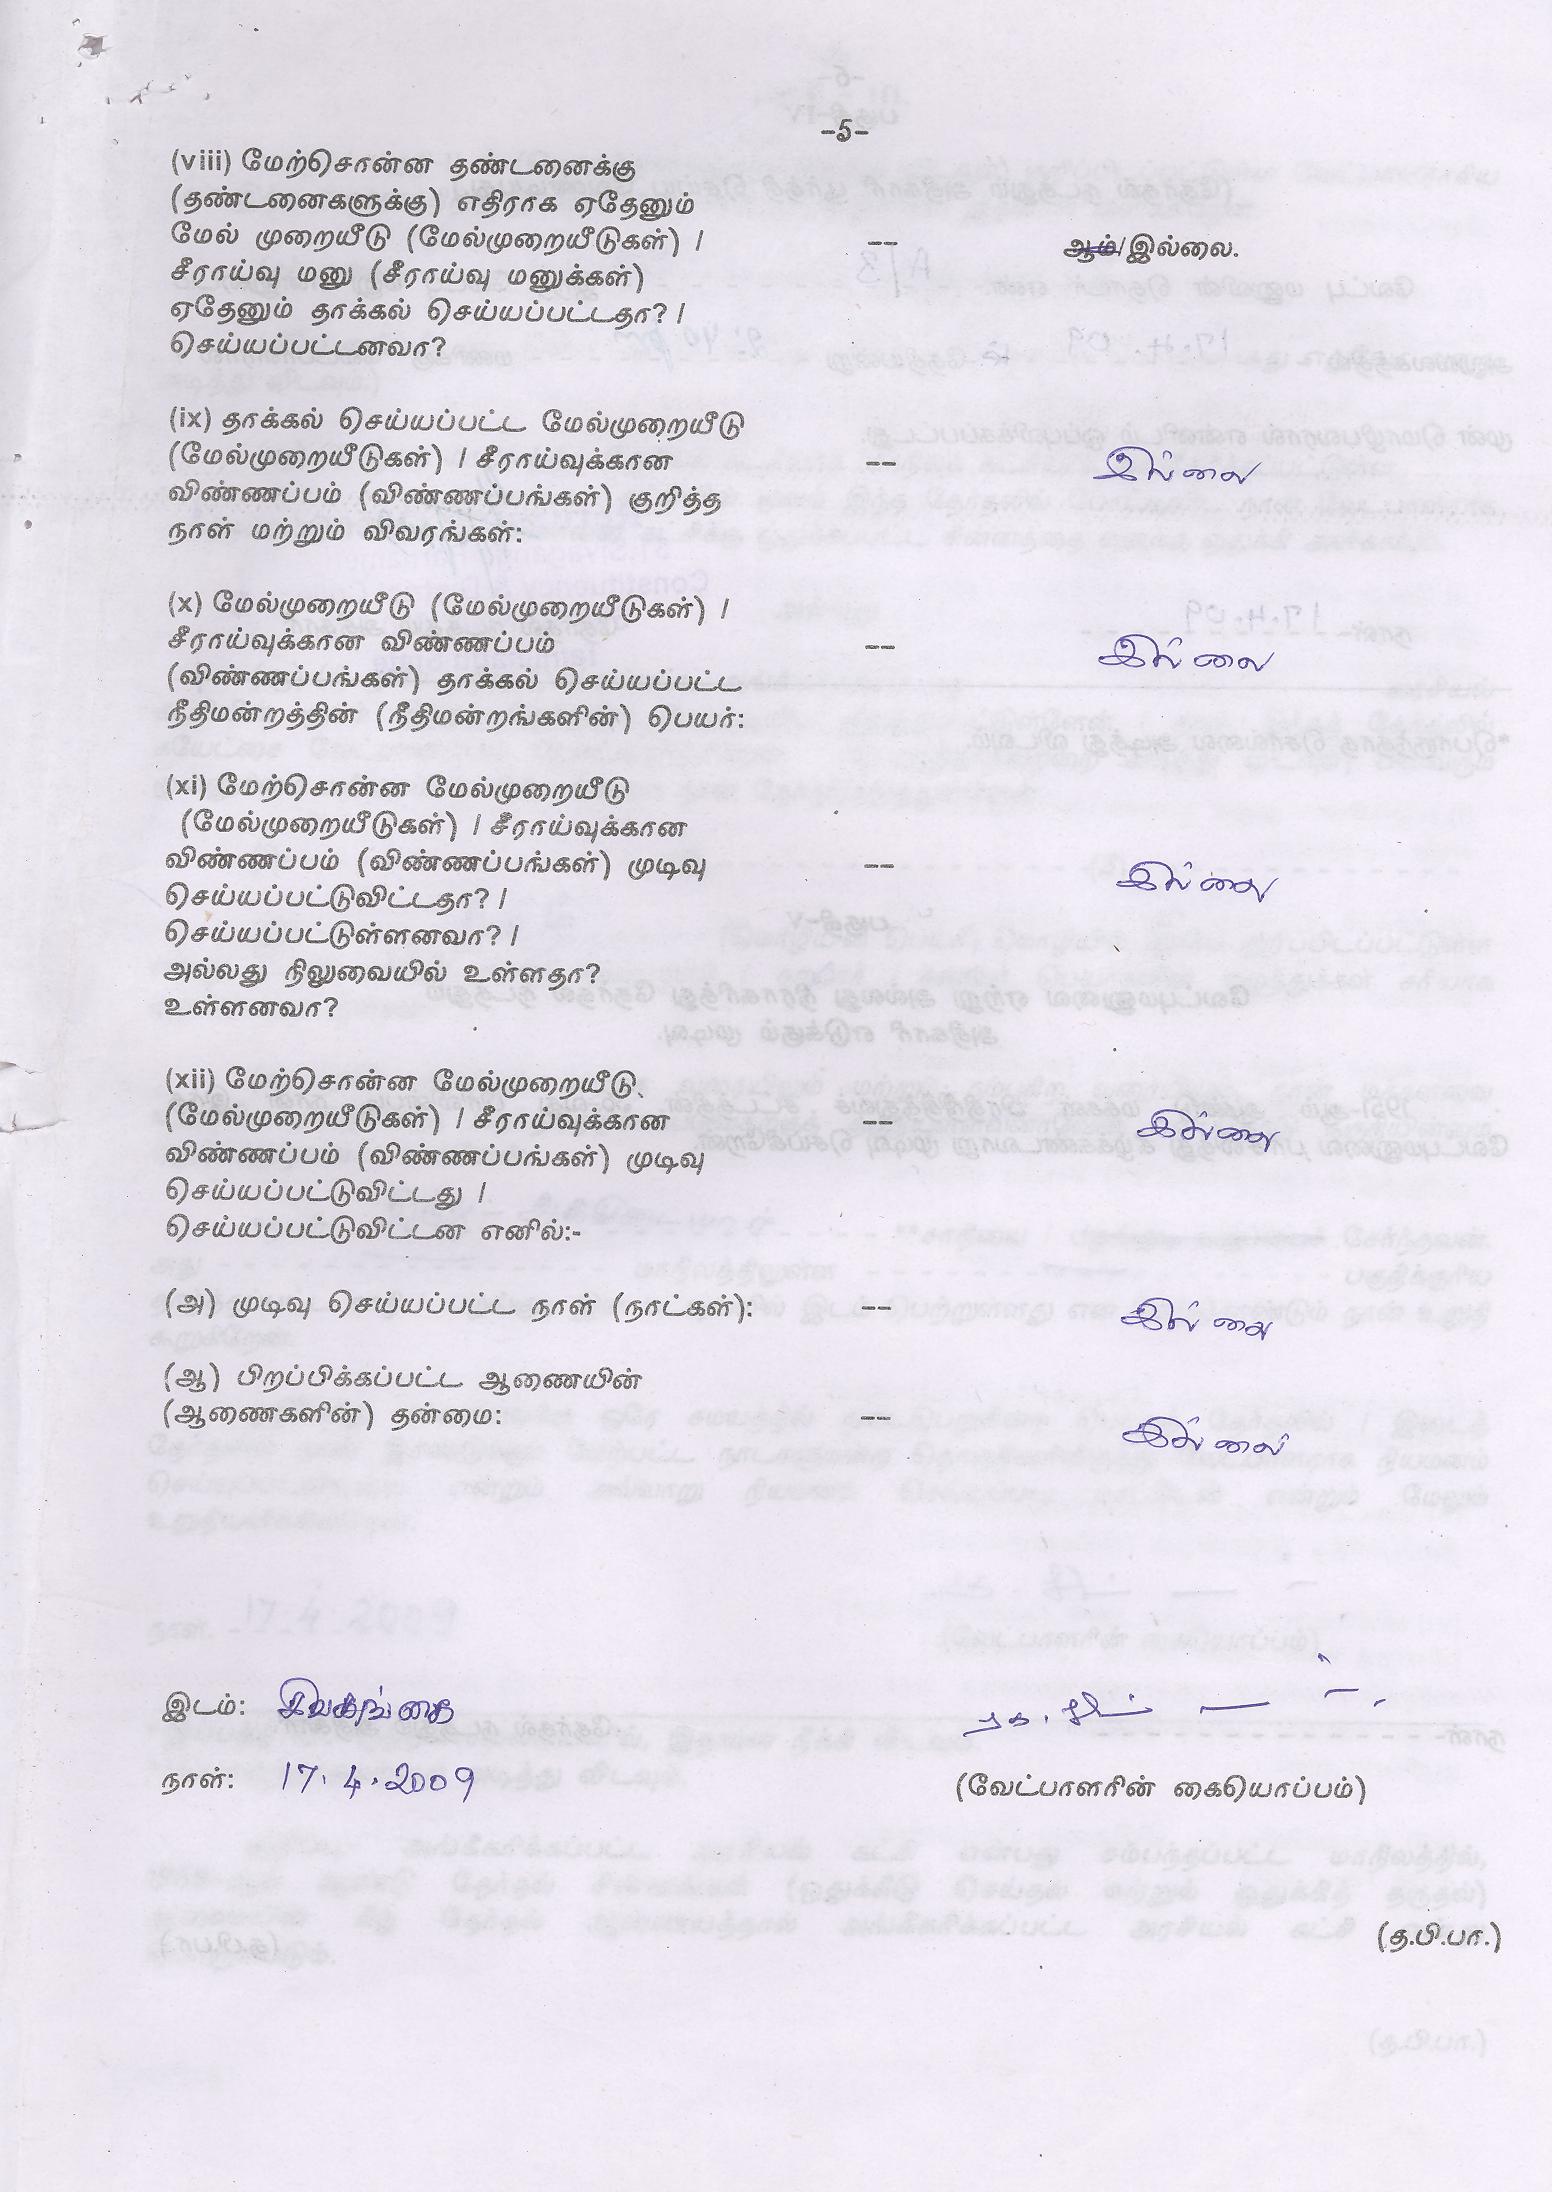 -5-
(viii) மேற்சொன்ன தண்டனைக்கு
(தண்டனைகளுக்கு) எதிராக ஏதேனும்
மேல் முறையீடு (மேல்முறையீடுகள்) / -- ஆம்/இல்லை.
சீராய்வு மனு (சீராய்வு மனுக்கள்)
ஏதேனும் தாக்கல் செய்யப்பட்டதா? /
செய்யப்பட்டனவா?
(ix) தாக்கல் செய்யப்பட்ட மேல்முறையீடு
(மேல்முறையீடுகள்) / சீராய்வுக்கான -- இல்லை
விண்ணப்பம் (விண்ணப்பங்கள்) குறித்த
நாள் மற்றும் விவரங்கள்:
(x) மேல்முறையீடு (மேல்முறையீடுகள்) /
சீராய்வுக்கான விண்ணப்பம் -- இல்லை
(விண்ணப்பங்கள்) தாக்கல் செய்யப்பட்ட
நீதிமன்றத்தின் (நீதிமன்றங்களின்) பெயர்:
(xi) மேற்சொன்ன மேல்முறையீடு
(மேல்முறையீடுகள்) / சீராய்வுக்கான
விண்ணப்பம் (விண்ணப்பங்கள்) முடிவு -- இல்லை
செய்யப்பட்டுவிட்டதா? /
செய்யப்பட்டுள்ளனவா? /
அல்லது நிலுவையில் உள்ளதா?
உள்ளனவா?
(xii) மேற்சொன்ன மேல்முறையீடு
(மேல்முறையீடுகள்) / சீராய்வுக்கான -- இல்லை
விண்ணப்பம் (விண்ணப்பங்கள்) முடிவு
செய்யப்பட்டுவிட்டது /
செய்யப்பட்டுவிட்டன எனில்:-
(அ) முடிவு செய்யப்பட்ட நாள் (நாட்கள்): -- இல்லை
(ஆ) பிறப்பிக்கப்பட்ட ஆணையின்
(ஆணைகளின்) தன்மை: -- இல்லை
இடம்: சிவகங்கை
நாள்: 17.4.2009 (வேட்பாளரின் கையொப்பம்)
(த.பி.பா.)